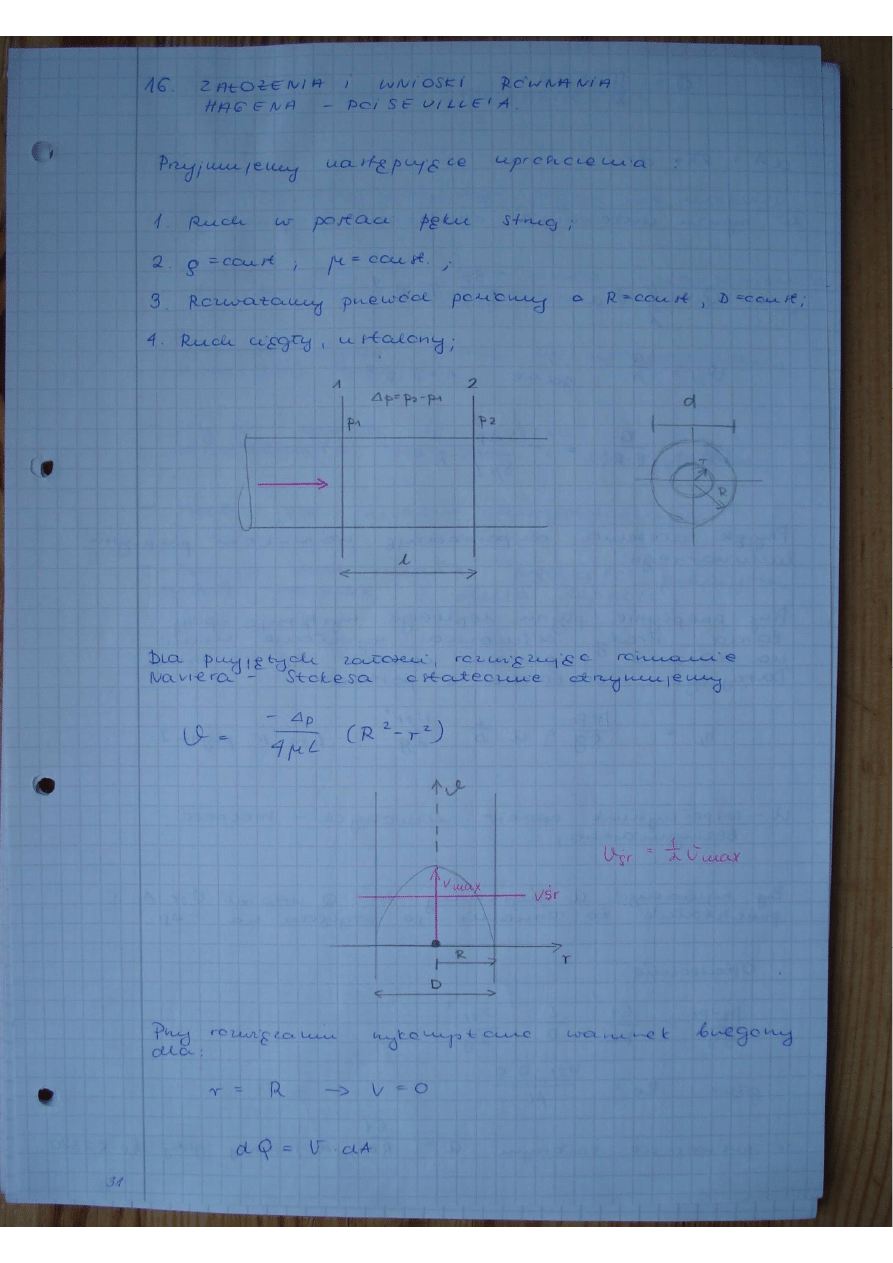 16. ZAŁOŻENIA I WNIOSKI RÓWNANIA
HAGENA - POISEUILLE'A.
Przyjmujemy następujące uproszczenia:
1. Ruch w postaci pęku strug;
2. ρ = const; μ = const.;
3. Rozważamy przewód poziomy o R=const, D=const;
4. Ruch ciągły, ustalony;
1 2
Δp=p2-p1
p1 p2
l
d
r
R
Dla przyjętych założeń, rozwiązując równanie
Naviera - Stokesa ostatecznie otrzymujemy
ϑ = -Δp / 4μL (R² - r²)
ϑ
Vśr = 1/2 Vmax
Vmax
Vśr
R
r
D
Przy rozwiązaniu wykorzystano warunek brzegowy
dla:
r = R → V = 0
dQ = V · dA
31